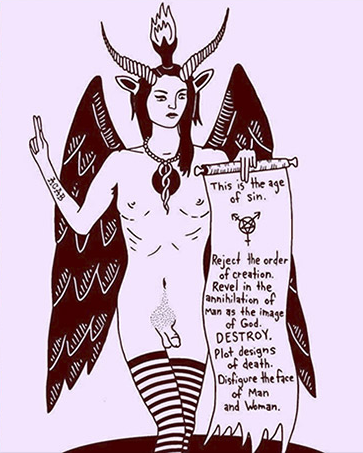 ACAB
This is the age
of sin.
Reject the order
of creation.
Revel in the
annihilation of
Man as the image
of God.
DESTROY.
Plot designs
of death.
Disfigure the face
of Man
and Woman.